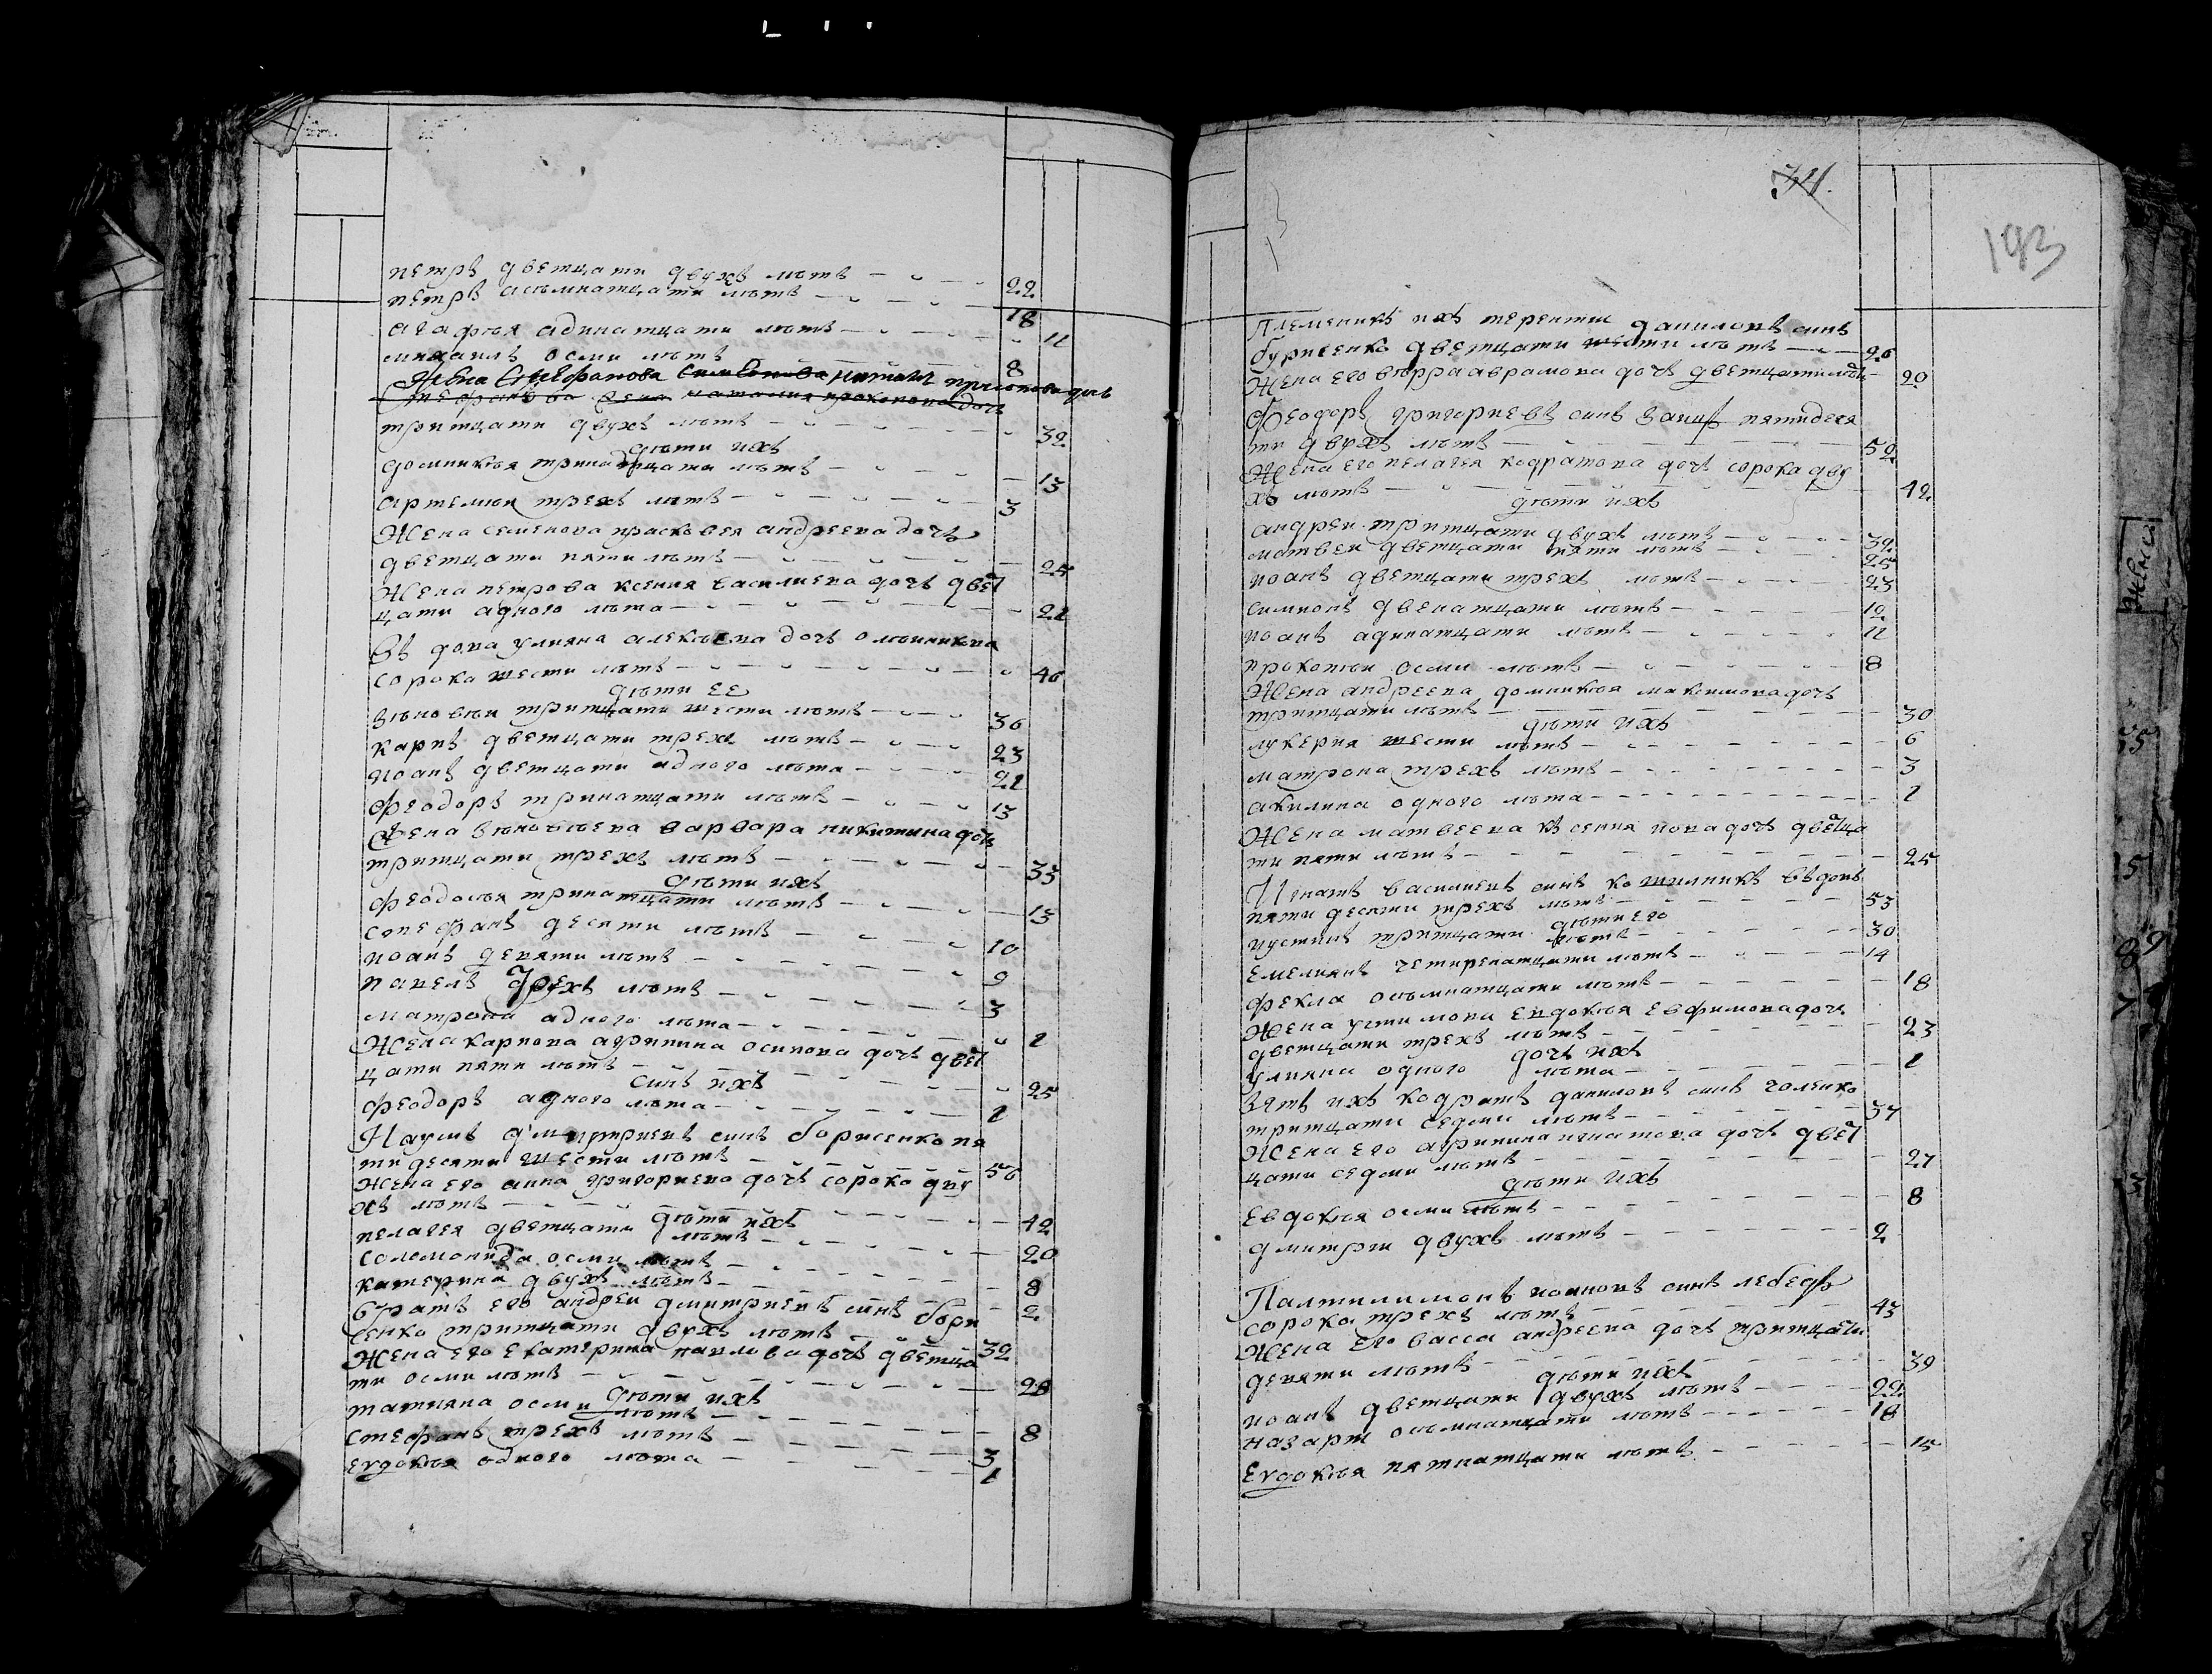 петръ дветцати двухъ лѣтъ 22
петръ асъмнатцати лѣтъ 18
агафия адинатцати лѣтъ 11
михаилъ осми лѣтъ 8
Жена Стефанова наталия прокопова дочь
тритцати двухъ лѣтъ 32
дѣти ихъ
домникия тринадцати лѣтъ 13
артемии трехъ лѣтъ 3
Жена семенова прасковея андреева дочь
дветцати пяти лѣтъ 25
Жена петрова ксения василиева дочь двет
цати адного лѣта 21
Въдова улияна алексѣева дочь
сорока шести лѣтъ 46
дѣти ее
зѣновѣи тритцати шести лѣтъ 36
карпъ дветцати трехъ лѣтъ 23
иоанъ дветцати адного лѣта 21
феодоръ тринатцати лѣтъ 13
Жена зѣновѣева варвара никитина дочь
тритцати трехъ лѣтъ 33
дѣти ихъ
феодосья тринатцати лѣтъ 13
стефанъ десяти лѣтъ 10
иоанъ девяти лѣтъ 9
павелъ трехъ лѣтъ 3
матрона адного лѣта 1
Жена карпова агрипина осипова дочь двет
цати пяти лѣтъ 25
синъ ихъ
феодоръ адного лѣта 1
Наумъ дмитриевъ синъ борисенко пя
тидесяти шести лѣтъ 56
жена его анна григориева дочь сорока дву
хъ лѣтъ 42
дѣти ихъ
пелагея дветцати лѣтъ 20
соломонида осми лѣтъ 8
катерина двухъ лѣтъ 2
братъ его андреи дмитриевъ синъ бори
сенко тритцати двухъ лѣтъ 32
Жена его екатерина павлова дочь дветца
ти осми лѣтъ 28
дѣти ихъ
татияна осми лѣтъ 8
стефанъ трехъ лѣтъ 3
евдокѣя одного лѣта 1
34.
193
Племеникъ ихъ терентии даниловъ синъ
бурисенко дветцати шести лѣтъ 26
Жена его аврамова дочь дветцати лѣтъ 20
Феодоръ григориевъ синъ заицъ пятидеся
ти двухъ лѣтъ 52
Жена его пелагея кодратова дочь сорока дву
хъ лѣтъ 42
дѣти ихъ
андреи тритцати двухъ лѣтъ 32
матвеи дветцати пяти лѣтъ 25
иоанъ дветцати трехъ лѣтъ 23
симионъ двенатцати лѣтъ 12
иоанъ адинатцати лѣтъ 11
прокопѣи осми лѣтъ 8
Жена андреева домникия максимова дочь
тритцати лѣтъ 30
дѣти ихъ
лукерия шести лѣтъ 6
матрона трехъ лѣтъ 3
акилина одного лѣта 1
Жена матвеева ксения дочь дветца
ти пяти лѣтъ 25
Игнатъ василиевъ синъ въдовъ
пяти десяти трехъ лѣтъ 53
дѣти его
иустинъ тритцати лѣтъ 30
емелиянъ четиренатцати лѣтъ 14
фекла осьмнатцати лѣтъ 18
Жена устимова евдокия евфимова дочь
дветцати трехъ лѣтъ 23
дочь ихъ
улияна одного лѣта 1
зять ихъ кодратъ даниловъ синъ голенко
тритцати седми лѣтъ 37
Жена его агрипина игнатова дочь двет
цати седми лѣтъ 27
дѣти ихъ
евдокѣя осми лѣтъ 8
дмитрии двухъ лѣтъ 2
Палтилимонъ иоановъ синъ лебедь
сорока трехъ лѣтъ 43
Жена его васса андреева дочь тритцати
девяти лѣтъ 39
дѣти ихъ
иоанъ дветцати двухъ лѣтъ 22
назарт осьмнатцати лѣтъ 18
Евдокѣя пятнатцати лѣтъ 15